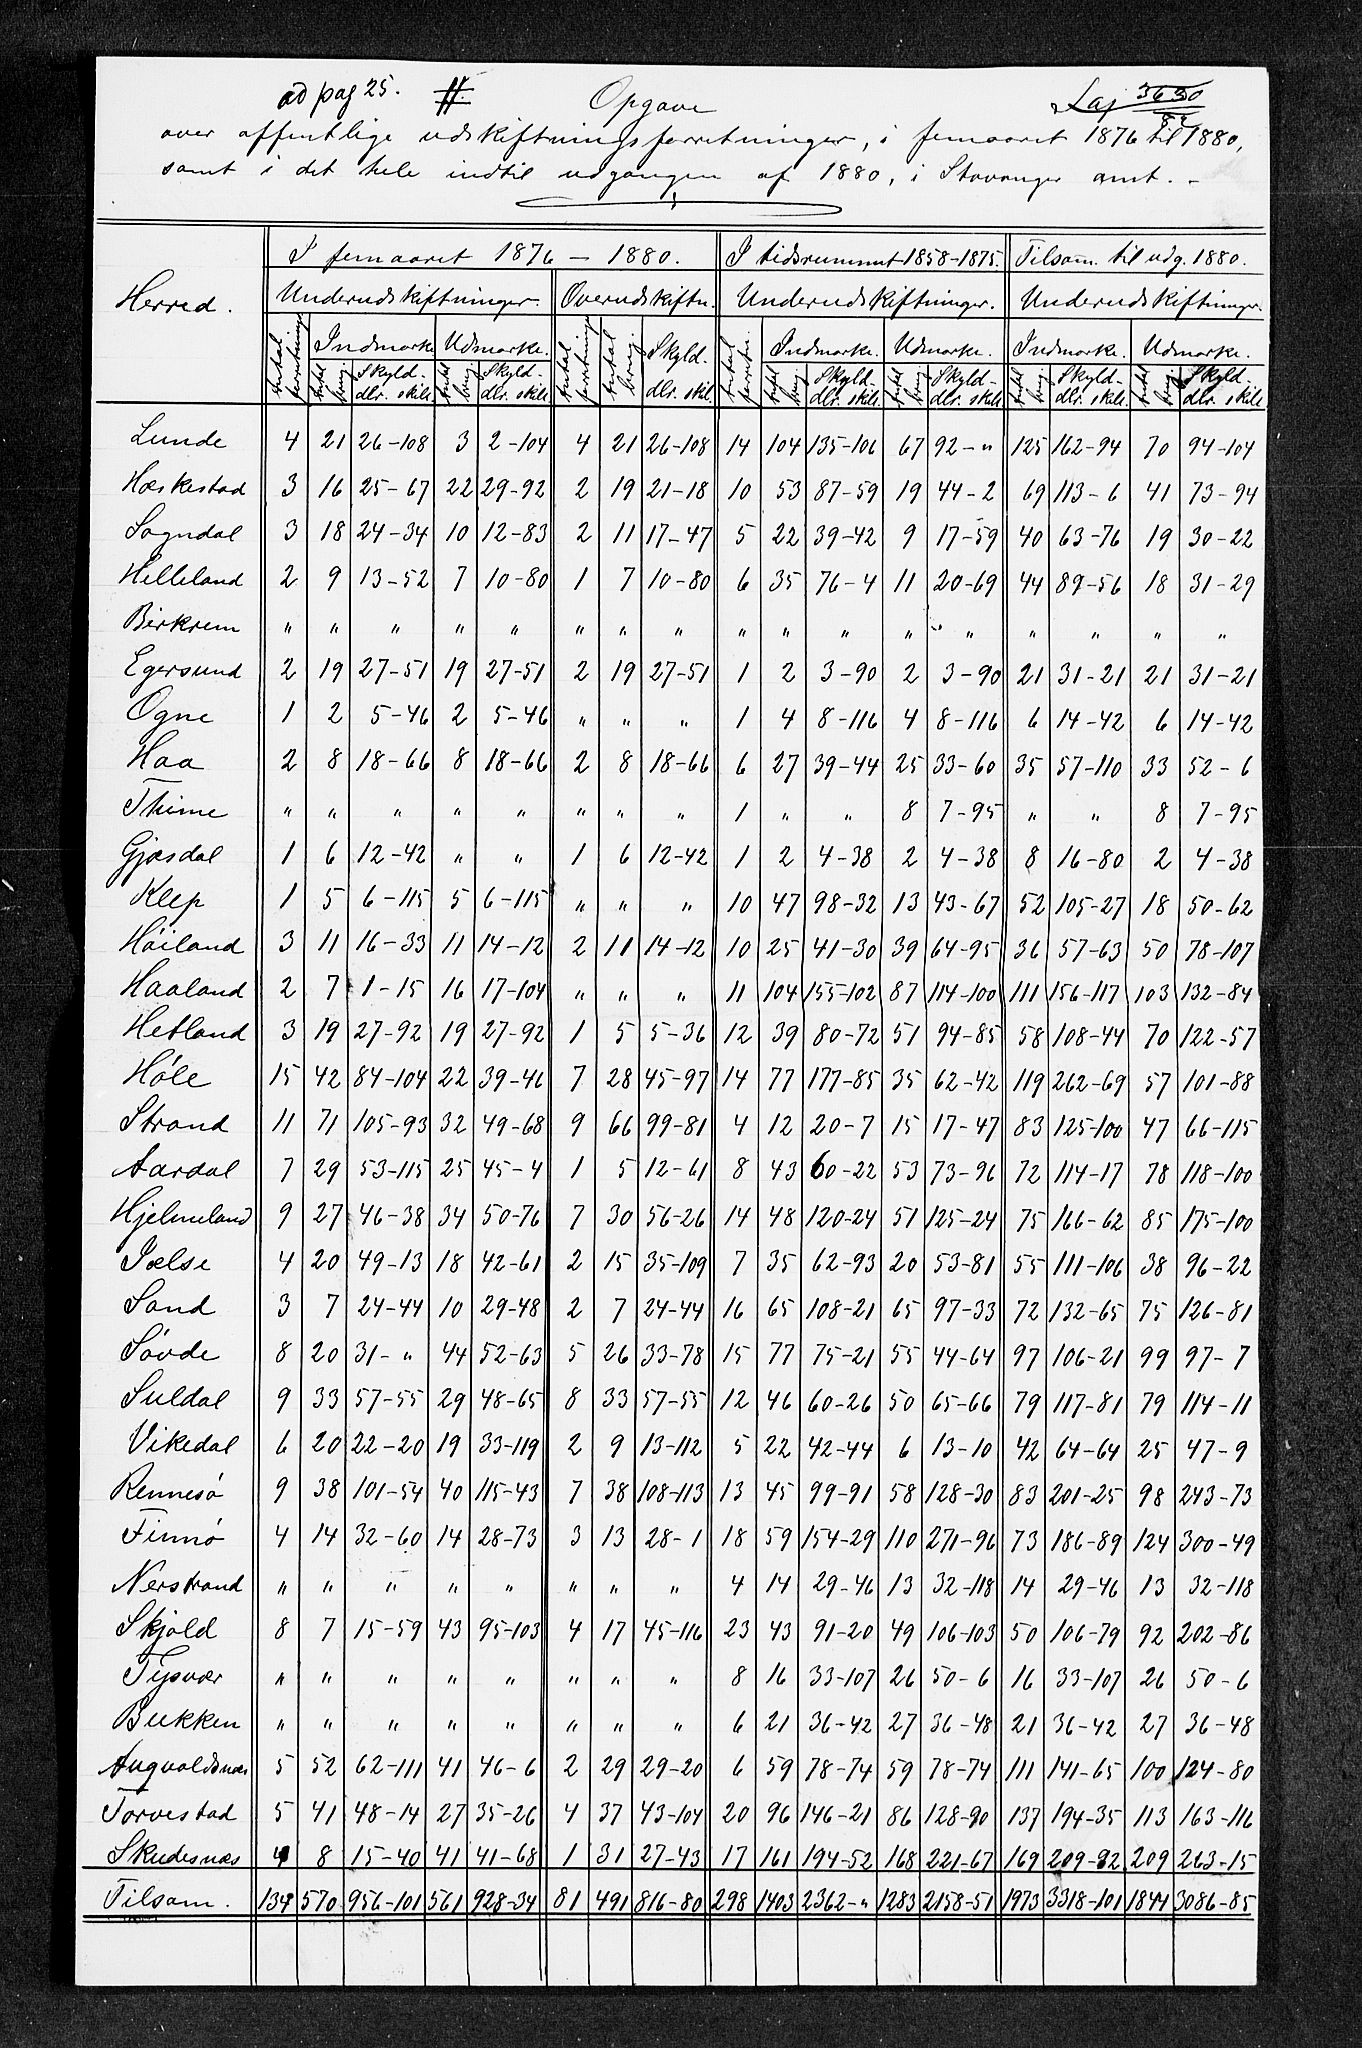 ad pag 25. # Opgave Laj 3630/82
over offentlige udskiftningsforretninger, i femaaret 1876 til 1880,
samt i det hele indtil udgangen af 1880, i Stavanger amt. -
Herred. | I femaaret 1876 - 1880. | I tidsrummet 1858-1875. | Tilsam. til udg. 1880.
Underudskiftninger. | Overudskiftn. | Underudskiftninger. | Underudskiftninger.
Antal forretninger | Indmarke | Udmarke. | Antal forretninger | Antal brug | Skyld. | Antal forretn. | Indmarke. | Udmarke. | Indmarke. | Udmarke.
Antal brug | Skyld- dlr. skill. | Antal brug | Skyld- dlr. skill. | dlr. skil. | Antal brug | Skyld- dlr. skill. | Antal brug | Skyld- dlr. skill. | Antal brug | Skyld- dlr. skill. | Antal brug | Skyld- dlr. skill.
Lunde 4 21 26-108 3 2-104 4 21 26-108 14 104 135-106 67 92-" 125 162-94 70 94-104
Hæskestad 3 16 25-67 22 29-92 2 19 21-18 10 53 87-59 19 44-2 69 113-6 41 73-94
Sogndal 3 18 24-34 10 12-83 2 11 17-47 5 22 39-42 9 17-59 40 63-76 19 30-22
Helleland 2 9 13-52 7 10-80 1 7 10-80 6 35 76-4 11 20-69 44 89-56 18 31-29
Birkrem " " " " " " " " " " " " " " " " "
Egersund 2 19 27-51 19 27-51 2 19 27-51 1 2 3-90 2 3-90 21 31-21 21 31-21
Ogne 1 2 5-46 2 5-46 " " " 1 4 8-116 4 8-116 6 14-42 6 14-42
Haa 2 8 18-66 8 18-66 2 8 18-66 6 27 39-44 25 33-60 35 57-110 33 52-6
Thime " " " " " " " " 1 " " 8 7-95 " " 8 7-95
Gjæsdal 1 6 12-42 " " 1 6 12-42 1 2 4-38 2 4-38 8 16-80 2 4-38
Klep 1 5 6-115 5 6-115 " " " 10 47 98-32 13 43-67 52 105-27 18 50-62
Höiland 3 11 16-33 11 14-12 2 11 14-12 10 25 41-30 39 64-95 36 57-63 50 78-107
Haaland 2 7 1-15 16 17-104 " " " 11 104 155-102 87 114-100 111 156-117 103 132-84
Hetland 3 19 27-92 19 27-92 1 5 5-36 12 39 80-72 51 94-85 58 108-44 70 122-57
Høle 15 42 84-104 22 39-46 7 28 45-97 14 77 177-85 35 62-42 119 262-69 57 101-88
Strand 11 71 105-93 32 49-68 9 66 99-81 4 12 20-7 15 17-47 83 125-100 47 66-115
Aardal 7 29 53-115 25 45-4 1 5 12-61 8 43 60-22 53 73-96 72 114-17 78 118-100
Hjelmeland 9 27 46-38 34 50-76 7 30 56-26 14 48 120-24 51 125-24 75 166-62 85 175-100
Jælse 4 20 49-13 18 42-61 2 15 35-109 7 35 62-93 20 53-81 55 111-106 38 96-22
Sand 3 7 24-44 10 29-48 2 7 24-44 16 65 108-21 65 97-33 72 132-65 75 126-81
Søvde 8 20 31-" 44 52-63 5 26 33-78 15 77 75-21 55 44-64 97 106-21 99 97-7
Suldal 9 33 57-55 29 48-65 8 33 57-55 12 46 60-26 50 65-66 79 117-81 79 114-11
Vikedal 6 20 22-20 19 33-119 2 9 13-112 5 22 42-44 6 13-10 42 64-64 25 47-9
Rennesö 9 38 101-54 40 115-43 7 38 108-113 13 45 99-91 58 128-30 83 201-25 98 243-73
Finnö 4 14 32-60 14 28-73 3 13 28-1 18 59 154-29 110 271-96 73 186-89 124 300-49
Nerstrand " " " " " " " " 4 14 29-46 13 32-118 14 29-46 13 32-118
Skjold 8 7 15-59 43 95-103 4 17 45-116 23 43 91-20 49 106-103 50 106-79 92 202-86
Tysvær " " " " " " " " 8 16 33-107 26 50-6 16 33-107 26 50-6
Bukken " " " " " " " " 6 21 36-42 27 36-48 21 36-42 27 36-48
Augvaldsnæs 5 52 62-111 41 46-6 2 29 29-20 6 59 78-74 59 78-74 111 141-65 100 124-80
Torvestad 5 41 48-14 27 35-26 4 37 43-104 20 96 146-21 86 128-90 137 194-35 113 163-116
Skudesnæs 4 8 15-40 41 41-68 1 31 27-43 17 161 194-52 168 221-67 169 209-92 209 263-15
Tilsam. 134 570 956-101 561 928-34 81 491 816-80 298 1403 2362-" 1283 2158-51 1973 3318-101 1844 3086-85